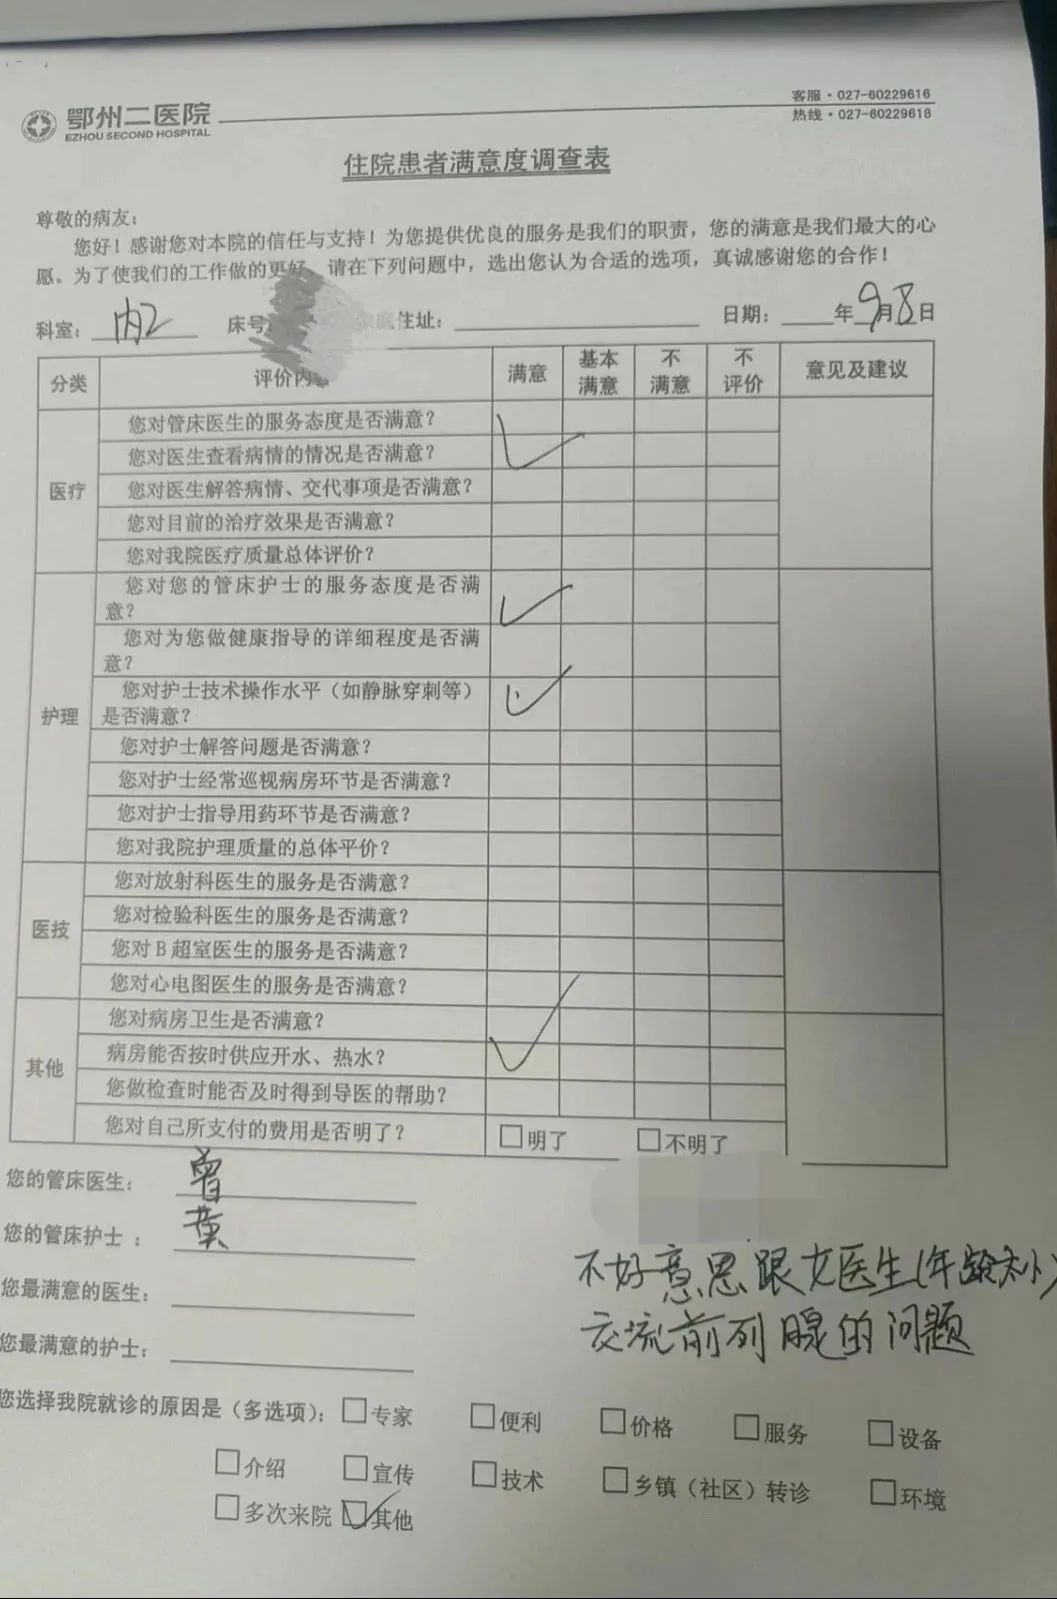 鄂州二医院
EZHOU SECOND HOSPITAL
客服·027-60229616
热线·027-60229618
住院患者满意度调查表
尊敬的病友：
您好！感谢您对本院的信任与支持！为您提供优良的服务是我们的职责，您的满意是我们最大的心
愿。为了使我们的工作做的更好，请在下列问题中，选出您认为合适的选项，真诚感谢您的合作！
科室：内2 床号 住址： 日期： 年9月8日
分类 评价内 满意 基本满意 不满意 不评价 意见及建议
医疗
您对管床医生的服务态度是否满意？
您对医生查看病情的情况是否满意？
您对医生解答病情、交代事项是否满意？
您对目前的治疗效果是否满意？
您对我院医疗质量总体评价？
护理
您对您的管床护士的服务态度是否满
意？
您对为您做健康指导的详细程度是否满
意？
您对护士技术操作水平（如静脉穿刺等）
是否满意？
您对护士解答问题是否满意？
您对护士经常巡视病房环节是否满意？
您对护士指导用药环节是否满意？
您对我院护理质量的总体平价？
医技
您对放射科医生的服务是否满意？
您对检验科医生的服务是否满意？
您对B超室医生的服务是否满意？
您对心电图医生的服务是否满意？
其他
您对病房卫生是否满意？
病房能否按时供应开水、热水？
您做检查时能否及时得到导医的帮助？
您对自己所支付的费用是否明了？ □明了 □不明了
您的管床医生：曾
您的管床护士：黄
您最满意的医生：
您最满意的护士：
不好意思跟女医生(年龄太小)
交流前列腺的问题
您选择我院就诊的原因是（多选项）：□专家 □便利 □价格 □服务 □设备
□介绍 □宣传 □技术 □乡镇（社区）转诊 □环境
□多次来院 ☑其他